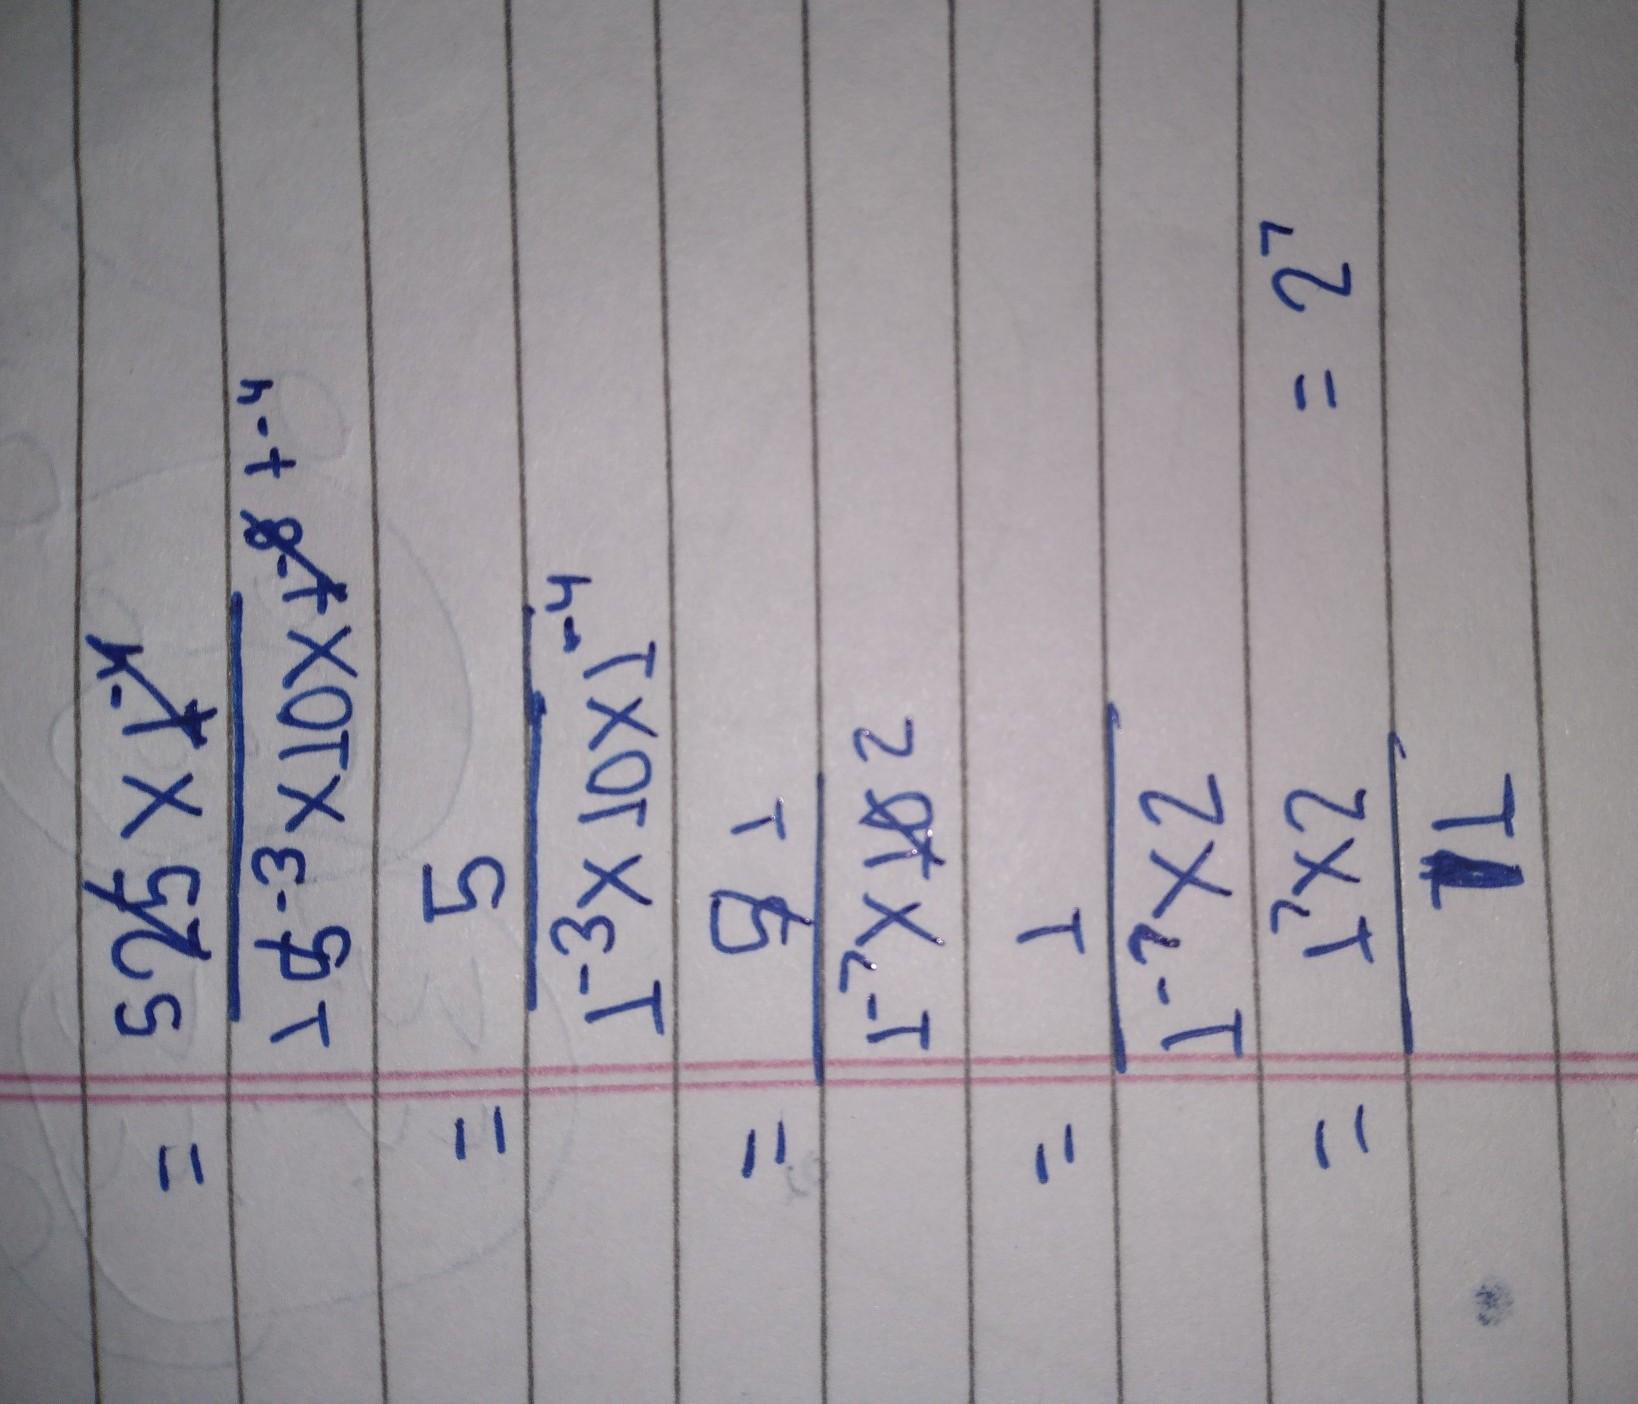 = 5 25 × 1⁻⁴
1 5⁻³ × 10 × t⁻⁸ t⁻⁴
= 5
1⁻³ × 10 × 1⁻⁴
= 5 1
1⁻⁷ × 10 2
= 1
1⁻⁷ × 2
= 1⁷ × 2 = 2⁷
1